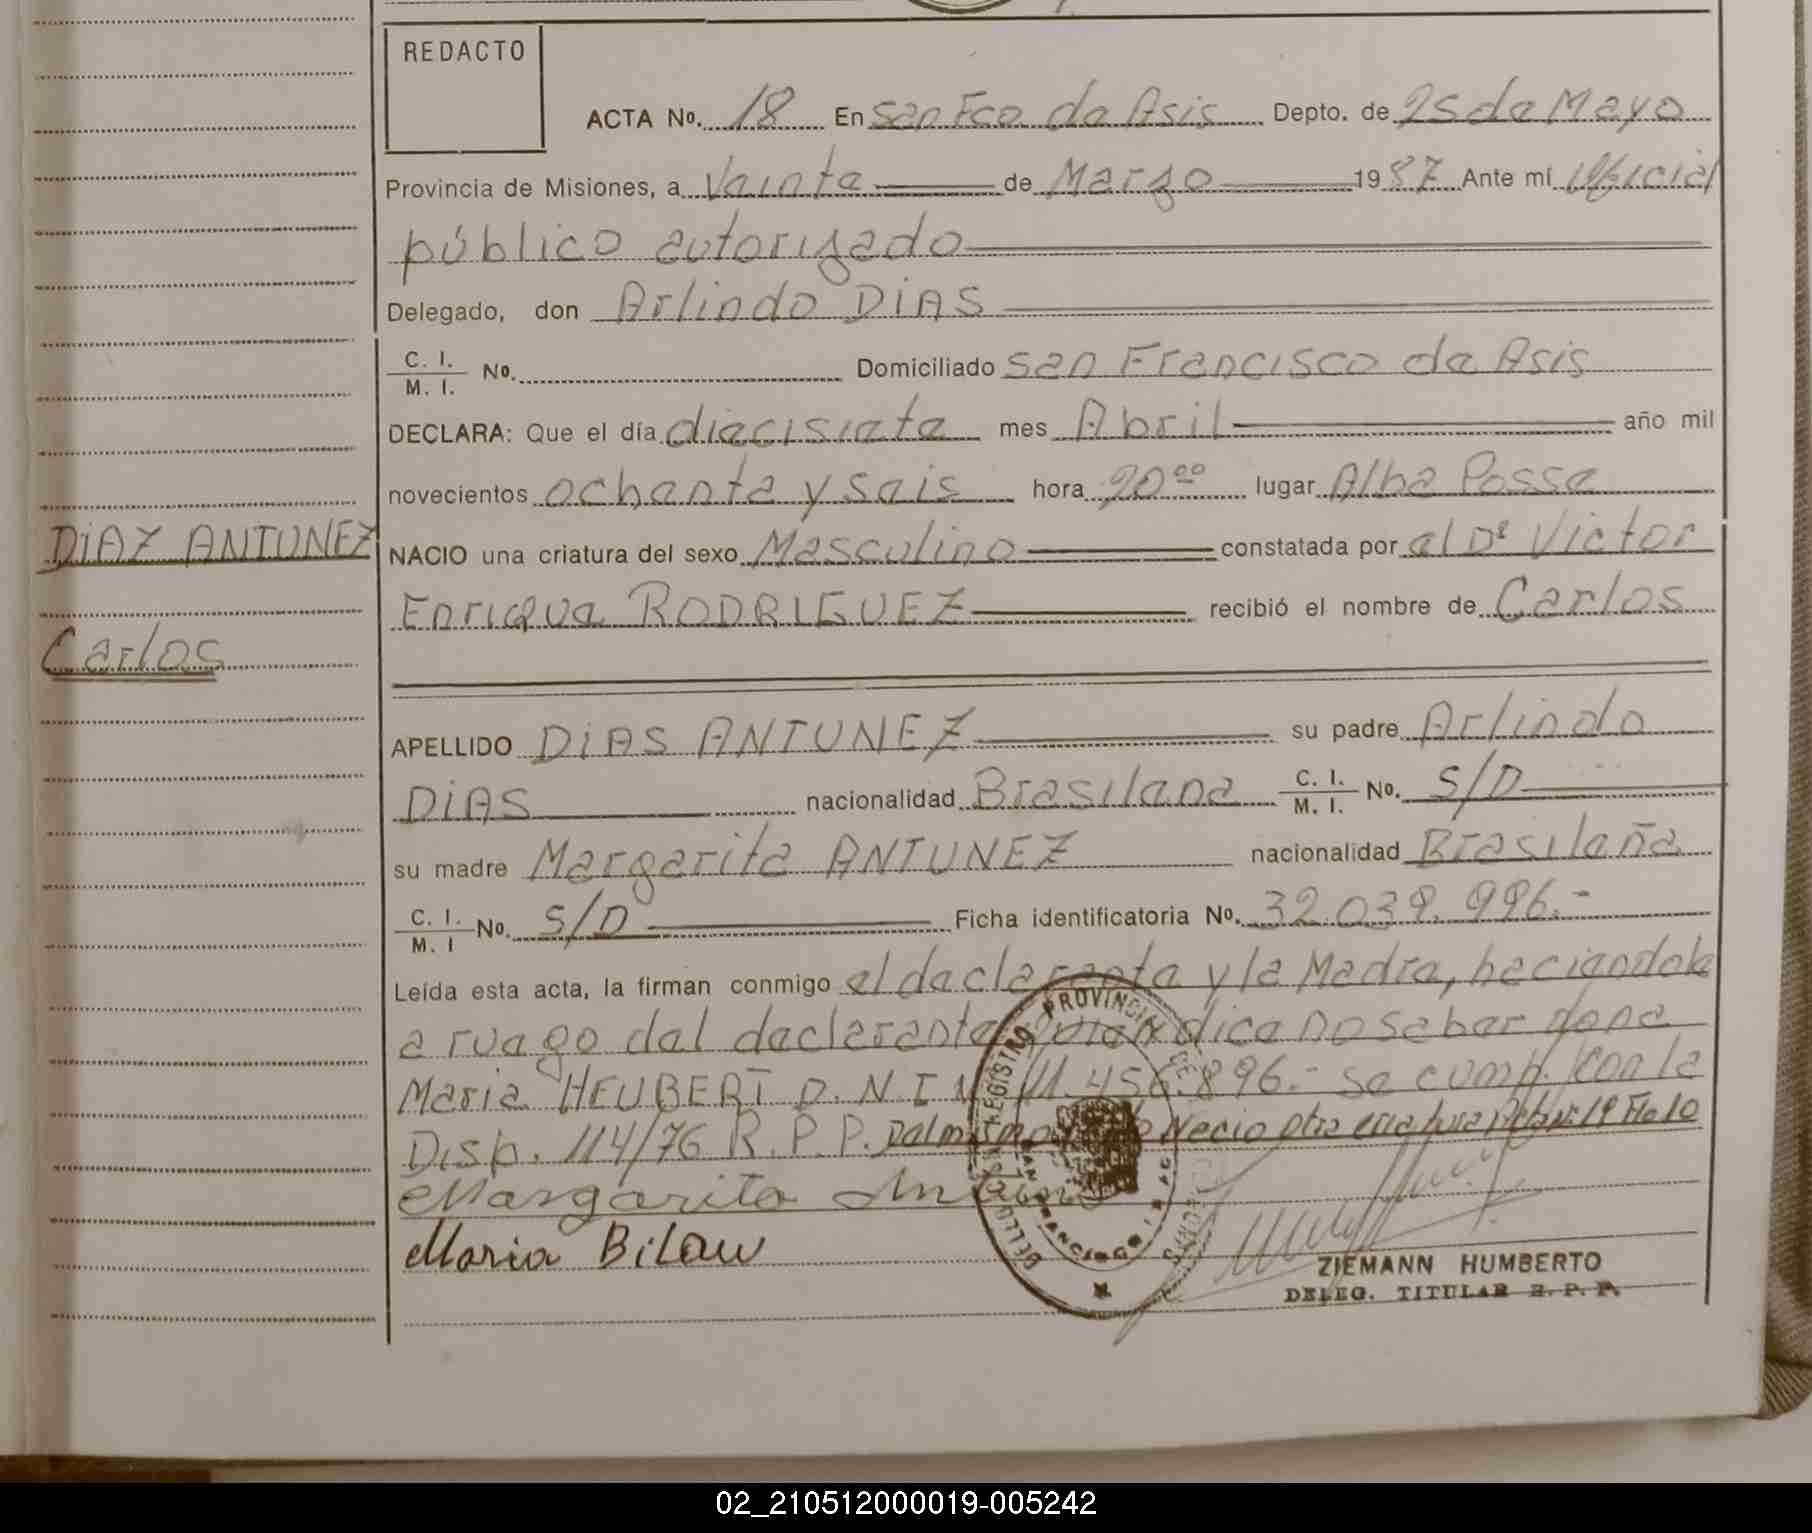 REDACTO
ACTA No. 18 En San Fco de Asis Depto. de 25 de Mayo
Provincia de Misiones, a Veinte de Marzo 1987 Ante mi Oficial
público autorizado
Delegado, don Arlindo DIAS
C. I.
M. I. No. Domiciliado San Francisco de Asis
DECLARA: Que el día diecisiete mes Abril año mil
novecientos ochenta y seis hora 20⁰⁰ lugar Alba Posse
DIAZ ANTUNEZ
NACIO una criatura del sexo Masculino constatada por el Dr Victor
Enrique RODRIGUEZ recibió el nombre de Carlos
Carlos
APELLIDO DIAS ANTUNEZ su padre Arlindo
DIAS nacionalidad Brasilena C. I. M. I. No. S/D
su madre Margarita ANTUNEZ nacionalidad Brasileña
C. I. M. I No. S/D Ficha identificatoria No. 32.039.996.-
Leída esta acta, la firman conmigo el declarente y la Madre, haciendole
a ruego del declarante quien dice no saber dona
Maria HEUBERT D. N. I. N 11.456.896.- se comp. con la
Disp. 114/76 R. P. P. Del mismo Necio otra criatura
Margarita
Maria Bilau
REGISTRO PROVINCIAL DE
SELLO
ZIEMANN HUMBERTO
DELEG. TITULAR R. P. P.
02_210512000019-005242